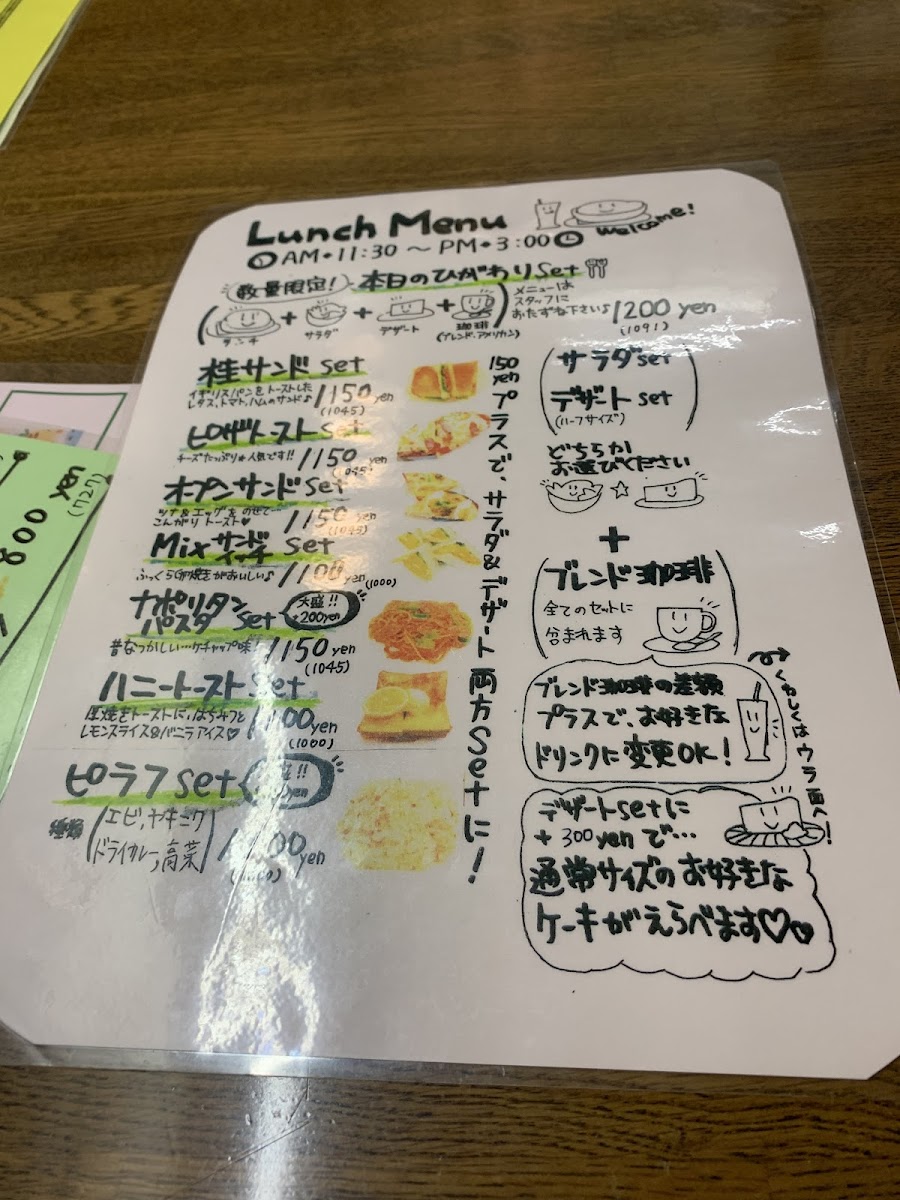 Lunch Menu
welcome!
AM・11:30 〜 PM・3:00
数量限定! 本日のひがわりset
メニューは
スタッフに
おたずね下さい♪
1200 yen
(1091)
ランチ + サラダ + デザート + 珈琲
(ブレンド、アメリカン)
桂サンド set
イギリスパンをトーストした
レタス、トマト、ハムのサンド♪
1150 yen
(1045)
ピザトースト set
チーズたっぷり 人気です!!
1150 yen
(1045)
オープンサンド set
ツナ&エッグをのせて…
こんがりトースト♥
1150 yen
(1045)
Mixサンドイッチ set
ふっくら卵焼きがおいしい♪
1100 yen
(1000)
ナポリタン
パスタ set
大盛!!
+200yen
昔なつかしい…ケチャップ味!
1150 yen
(1045)
ハニートースト set
厚焼きトーストに、はちみつと
レモンスライス&バニラアイス♡
1100 yen
(1000)
ピラフ set
種類
エビ、ヤキニク
ドライカレー、高菜
yen
150 yen プラスで、サラダ&デザート両方setに!
サラダset
デザートset
(ハーフサイズ)
どちらか
お選びください
+
ブレンド珈琲
全てのセットに
含まれます
ブレンド珈琲の差額
プラスで、お好きな
ドリンクに変更OK!
くわしくはウラ面へ!
デザートsetに
+ 300 yenで…
通常サイズのお好きな
ケーキがえらべます♡
800 yen
(727)